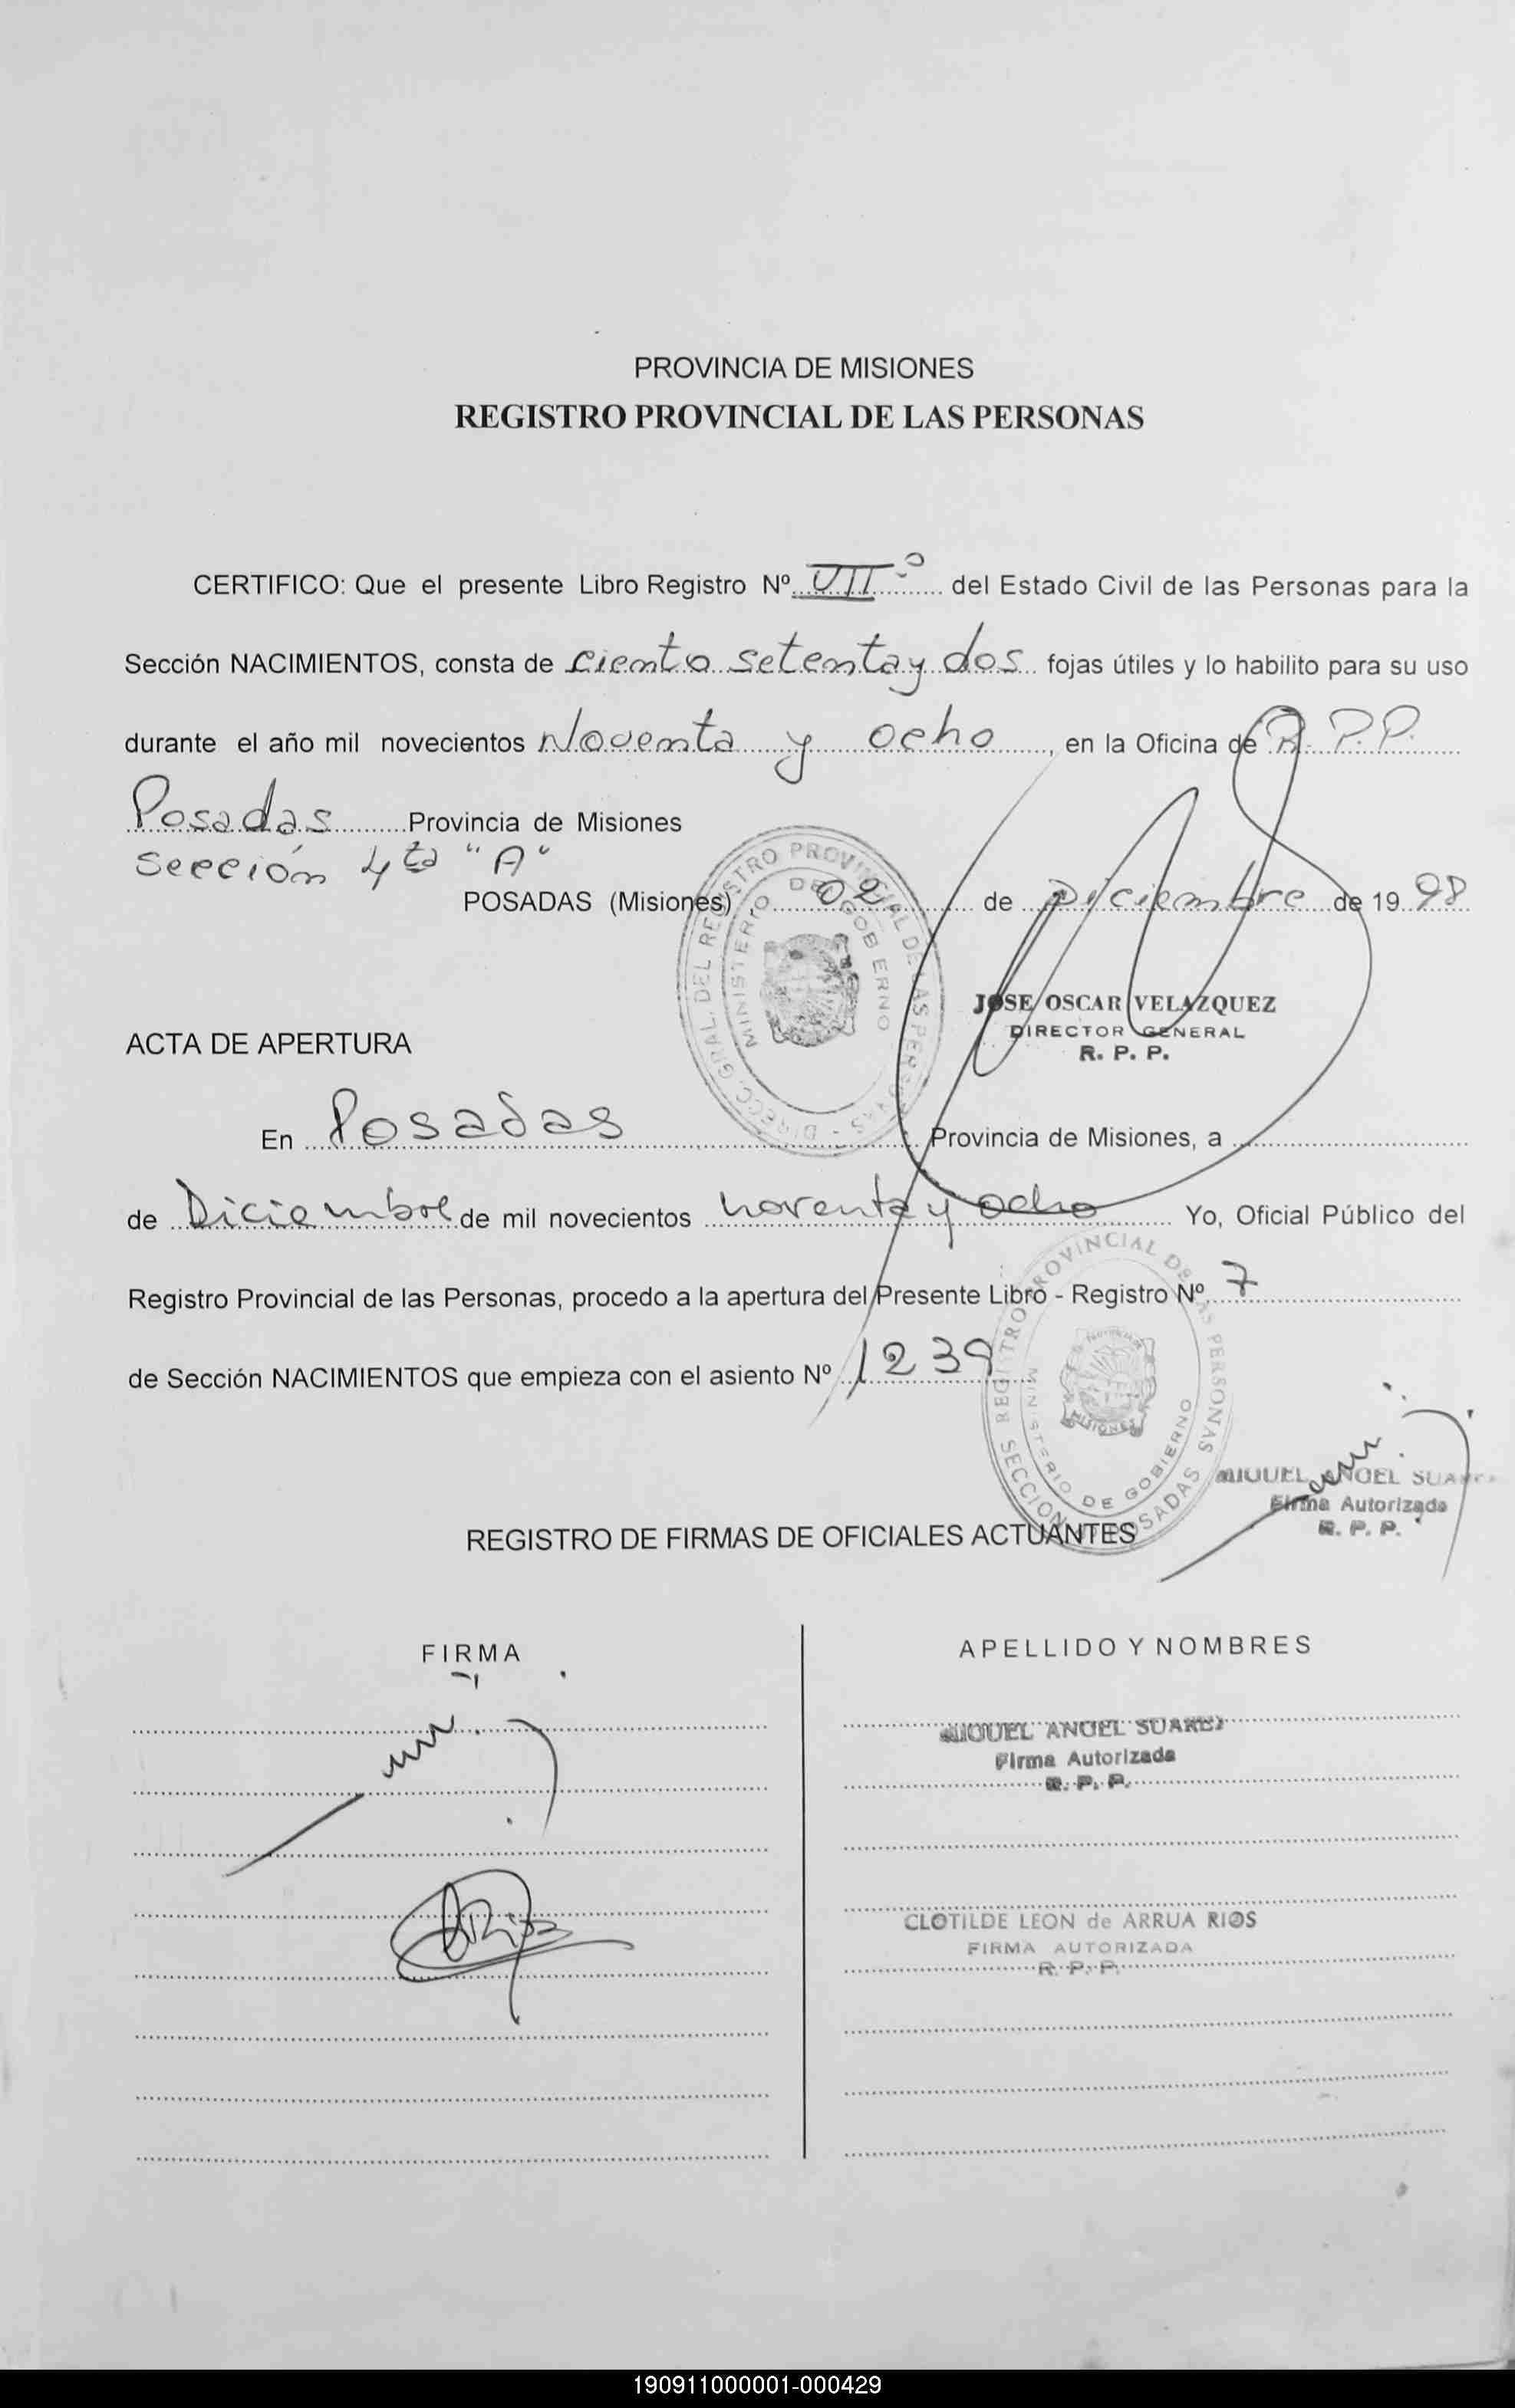 PROVINCIA DE MISIONES
REGISTRO PROVINCIAL DE LAS PERSONAS
CERTIFICO: Que el presente Libro Registro Nº VIIº del Estado Civil de las Personas para la
Sección NACIMIENTOS, consta de ciento setenta y dos fojas útiles y lo habilito para su uso
durante el año mil novecientos Noventa y ocho, en la Oficina de R.P.P.
Posadas Provincia de Misiones
Sección 4ta "A"
POSADAS (Misiones) 02 de Diciembre de 1998
DIRECC. GRAL. DEL REGISTRO PROVINCIAL DE LAS PERSONAS
MINISTERIO DE GOBIERNO
JOSE OSCAR VELAZQUEZ
DIRECTOR GENERAL
R. P. P.
ACTA DE APERTURA
En Posadas Provincia de Misiones, a
de Diciembre de mil novecientos noventa y ocho Yo, Oficial Público del
Registro Provincial de las Personas, procedo a la apertura del Presente Libro - Registro Nº 7
de Sección NACIMIENTOS que empieza con el asiento Nº 1239
REGISTRO PROVINCIAL DE LAS PERSONAS
MINISTERIO DE GOBIERNO
MISIONES
SECCION POSADAS
MIGUEL ANGEL SUAREZ
Firma Autorizada
R. P. P.
REGISTRO DE FIRMAS DE OFICIALES ACTUANTES
FIRMA APELLIDO Y NOMBRES
MIGUEL ANGEL SUAREZ
Firma Autorizada
R. P. P.
CLOTILDE LEON de ARRUA RIOS
FIRMA AUTORIZADA
R. P. P.
190911000001-000429